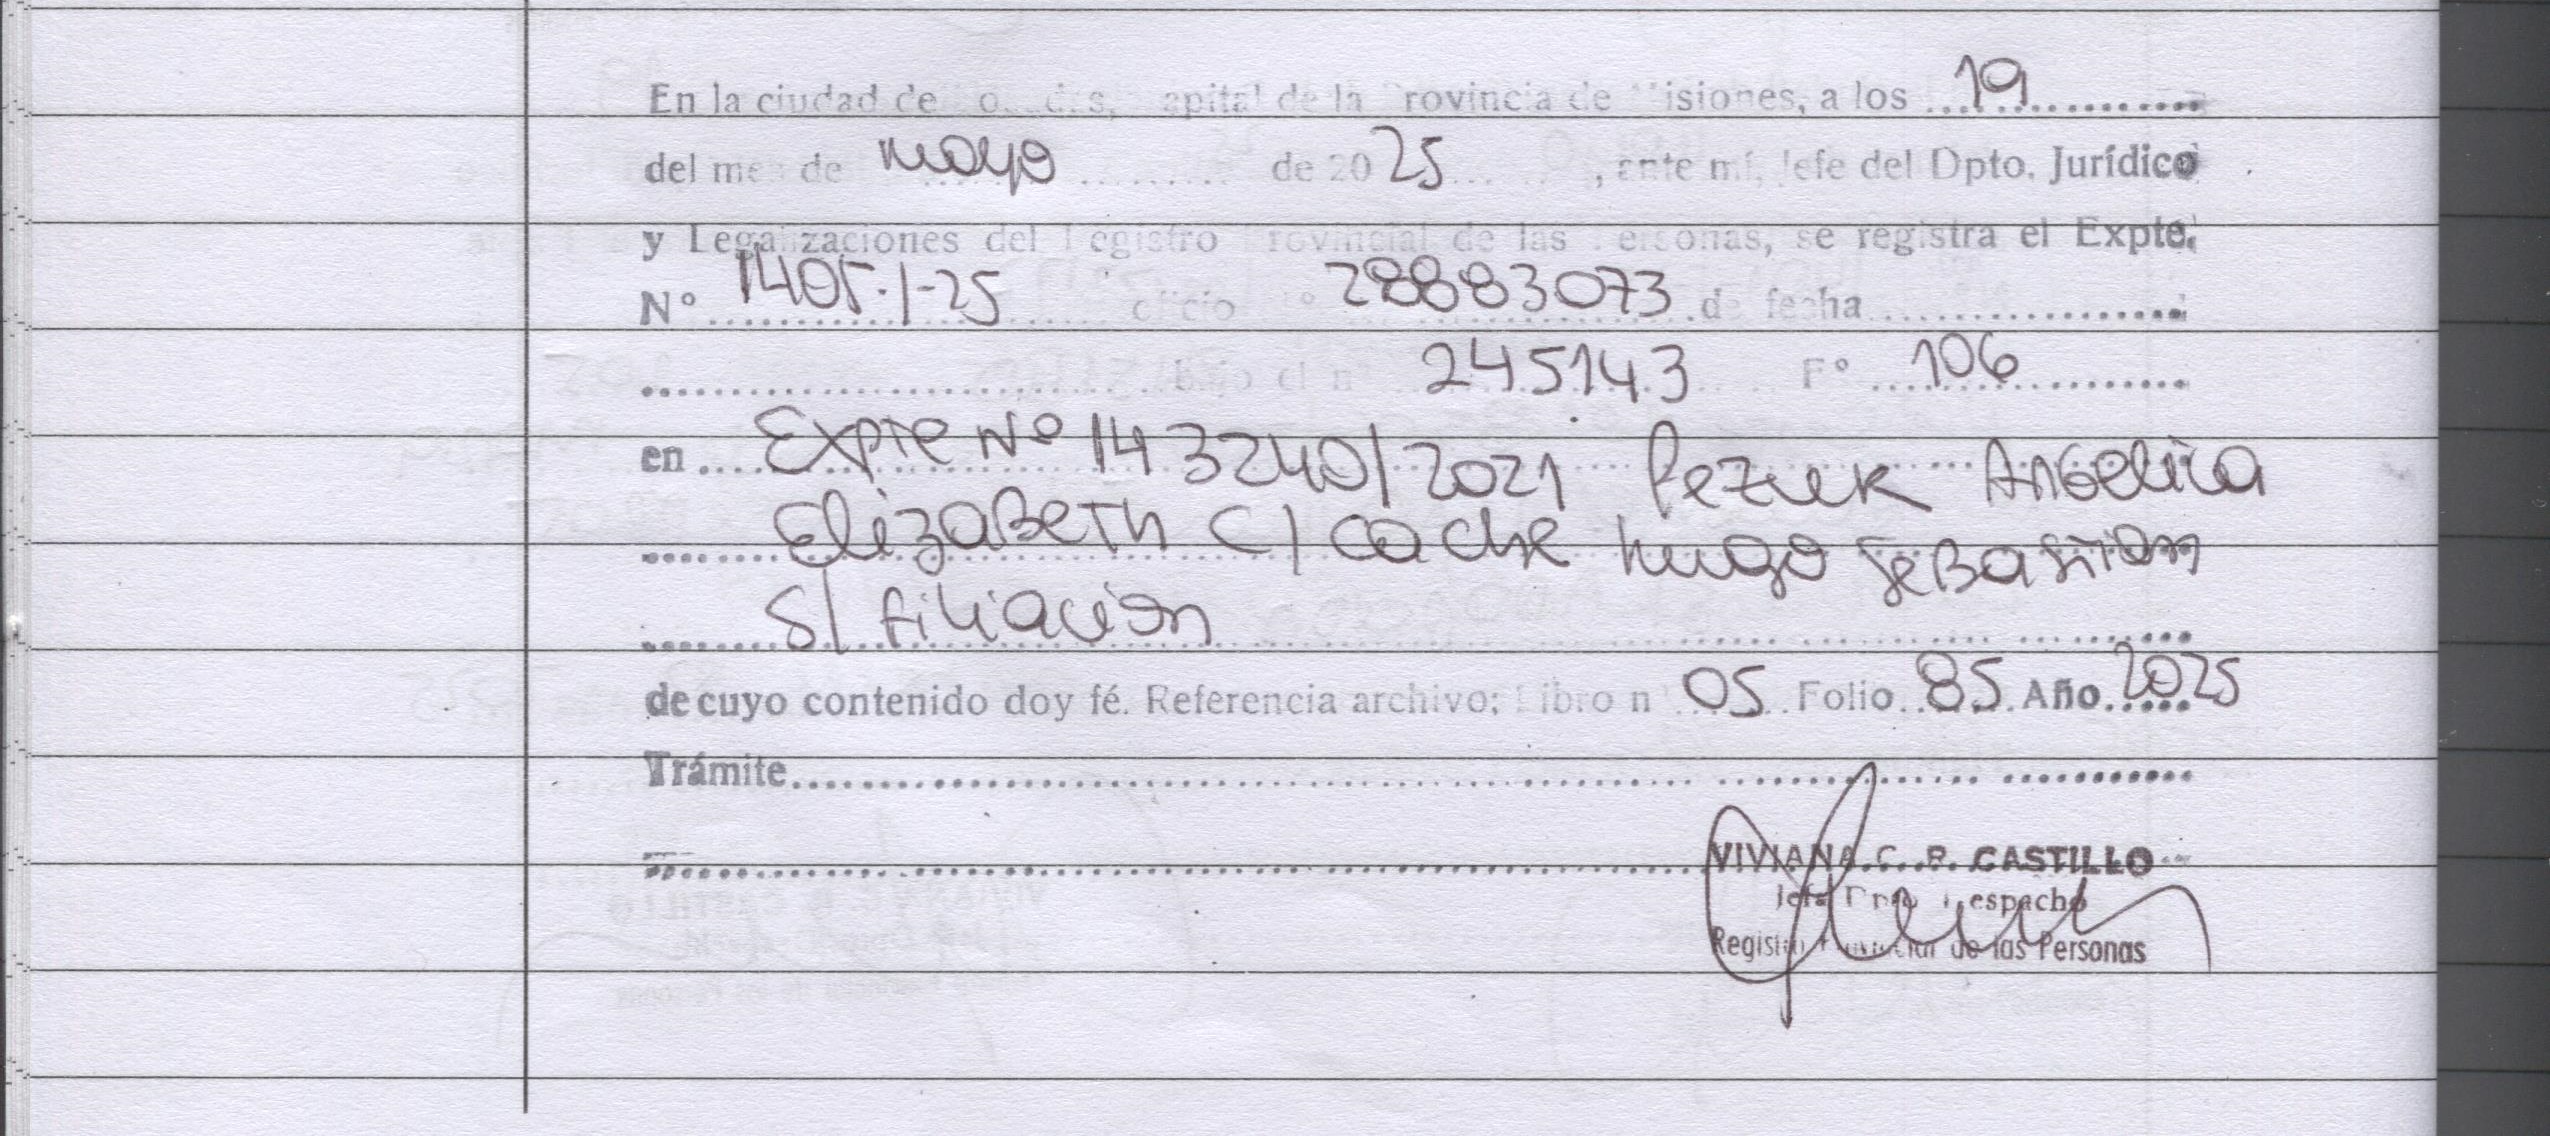 En la ciudad de Posadas, Capital de la Provincia de Misiones, a los 19
del mes de mayo de 2025, ante mí, Jefe del Dpto. Jurídico
y Legalizaciones del Registro Provincial de las Personas, se registra el Expte.
N° 1405-I-25 oficio N° 28883073 de fecha
bajo el n° 245143 F° 106
en Expte Nº 143240/2021 Pezuk Angelica
Elizabeth C/ Cache Hugo Sebastian
S/ filiacion
de cuyo contenido doy fé. Referencia archivo: Libro n° 05 Folio 85 Año 2025
Trámite
VIVIANA C. R. CASTILLO
Jefa Dpto. Despacho
Registro Provincial de las Personas